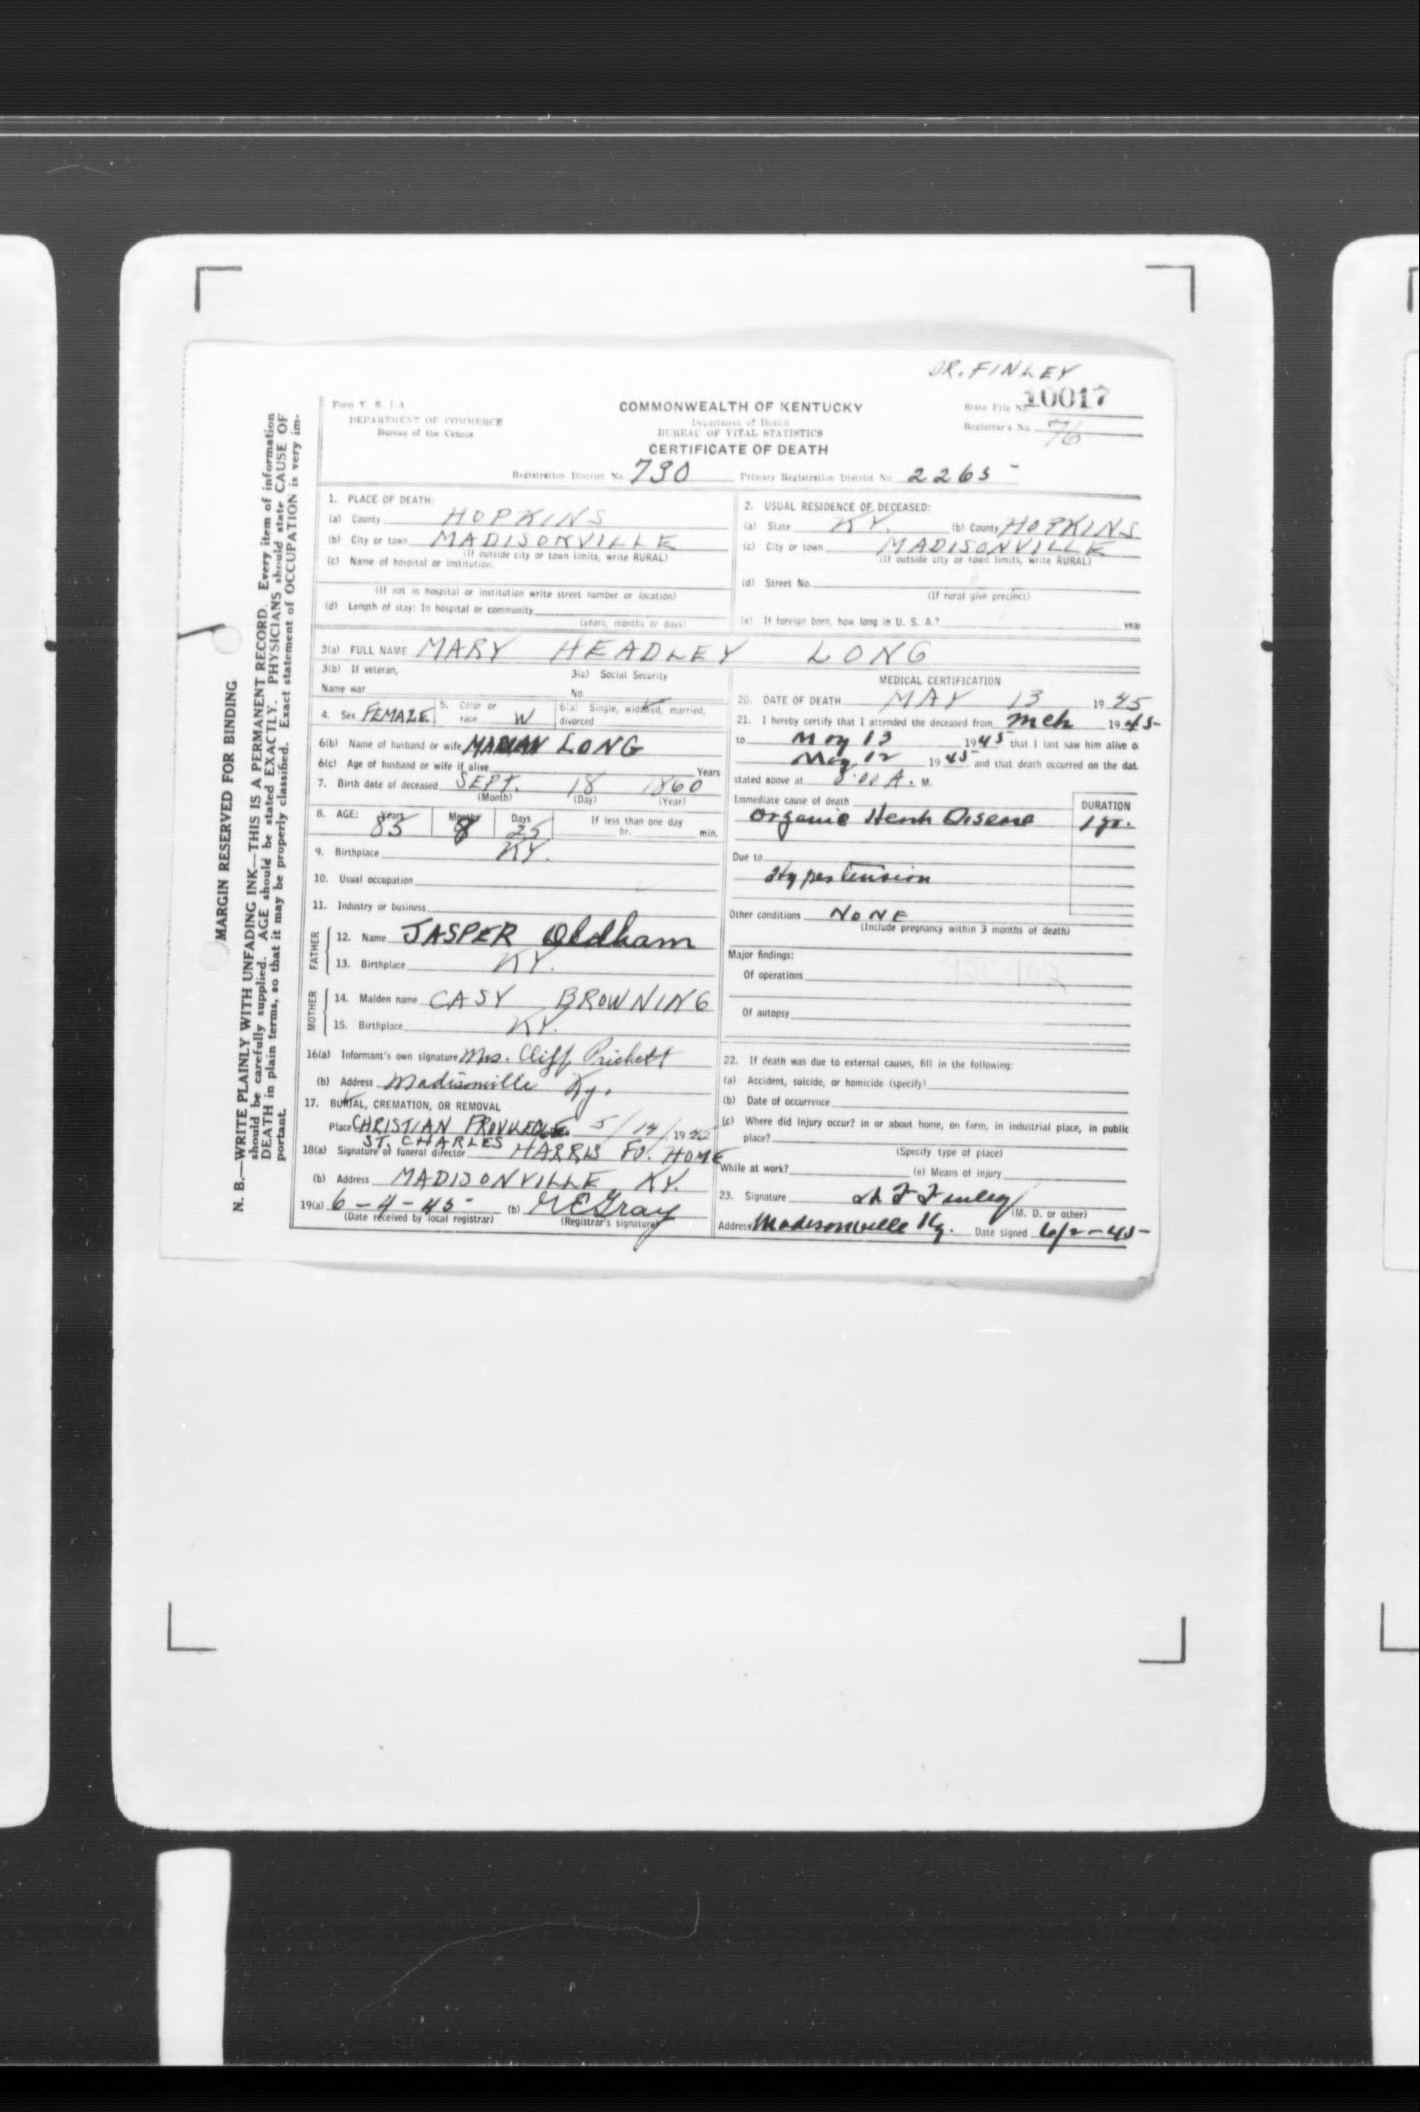 DR. FINLEY
Form V. S. 1-A
DEPARTMENT OF COMMERCE
Bureau of the Census
COMMONWEALTH OF KENTUCKY
Department of Health
BUREAU OF VITAL STATISTICS
CERTIFICATE OF DEATH
State File No. 10017
Registrar's No. 76
Registration District No. 730
Primary Registration District No. 2265
MARGIN RESERVED FOR BINDING
N. B.—WRITE PLAINLY WITH UNFADING INK—THIS IS A PERMANENT RECORD. Every item of information
should be carefully supplied. AGE should be stated EXACTLY. PHYSICIANS should state CAUSE OF
DEATH in plain terms, so that it may be properly classified. Exact statement of OCCUPATION is very im-
portant.
1. PLACE OF DEATH:
(a) County HOPKINS
(b) City or town MADISONVILLE
(If outside city or town limits, write RURAL)
(c) Name of hospital or institution:
(If not in hospital or institution write street number or location)
(d) Length of stay: In hospital or community
(years, months or days)
2. USUAL RESIDENCE OF DECEASED:
(a) State KY. (b) County HOPKINS
(c) City or town MADISONVILLE
(If outside city or town limits, write RURAL)
(d) Street No.
(If rural give precinct)
(e) If foreign born, how long in U. S. A.? year
3(a) FULL NAME MARY HEADLEY LONG
3(b) If veteran,
Name war
3(c) Social Security
No.
4. Sex FEMALE
5. Color or
race W
6(a) Single, widowed, married,
divorced
6(b) Name of husband or wife LONG
6(c) Age of husband or wife if alive Years
7. Birth date of deceased SEPT. 18 1860
(Month) (Day) (Year)
8. AGE: Years Months Days If less than one day
85 8 25 hr. min.
9. Birthplace KY.
10. Usual occupation
11. Industry or business
FATHER
12. Name JASPER Oldham
13. Birthplace KY.
MOTHER
14. Maiden name CASY BROWNING
15. Birthplace KY.
16(a) Informant's own signature Mrs. Cliff Prichett
(b) Address Madisonville Ky.
17. BURIAL, CREMATION, OR REMOVAL
Place CHRISTIAN PROVIDENCE 5/14/19
ST. CHARLES
18(a) Signature of funeral director HARRIS FU. HOME
(b) Address MADISONVILLE, KY.
19(a) 6-4-45 (b) Gray
(Date received by local registrar) (Registrar's signature)
MEDICAL CERTIFICATION
20. DATE OF DEATH MAY 13 1945
21. I hereby certify that I attended the deceased from Mch 1945
to May 13 1945 that I last saw him alive o
May 12 1945 and that death occurred on the dat
stated above at 8:00 A. M.
Immediate cause of death DURATION
Organic Heart Disease 1 yr.
Due to
Hypertension
Other conditions NONE
(Include pregnancy within 3 months of death)
Major findings:
Of operations
Of autopsy
22. If death was due to external causes, fill in the following:
(a) Accident, suicide, or homicide (specify)
(b) Date of occurrence
(c) Where did injury occur? in or about home, on farm, in industrial place, in public
place?
(Specify type of place)
While at work? (e) Means of injury
23. Signature Finley
(M. D. or other)
Address Madisonville Ky. Date signed 6/2-45